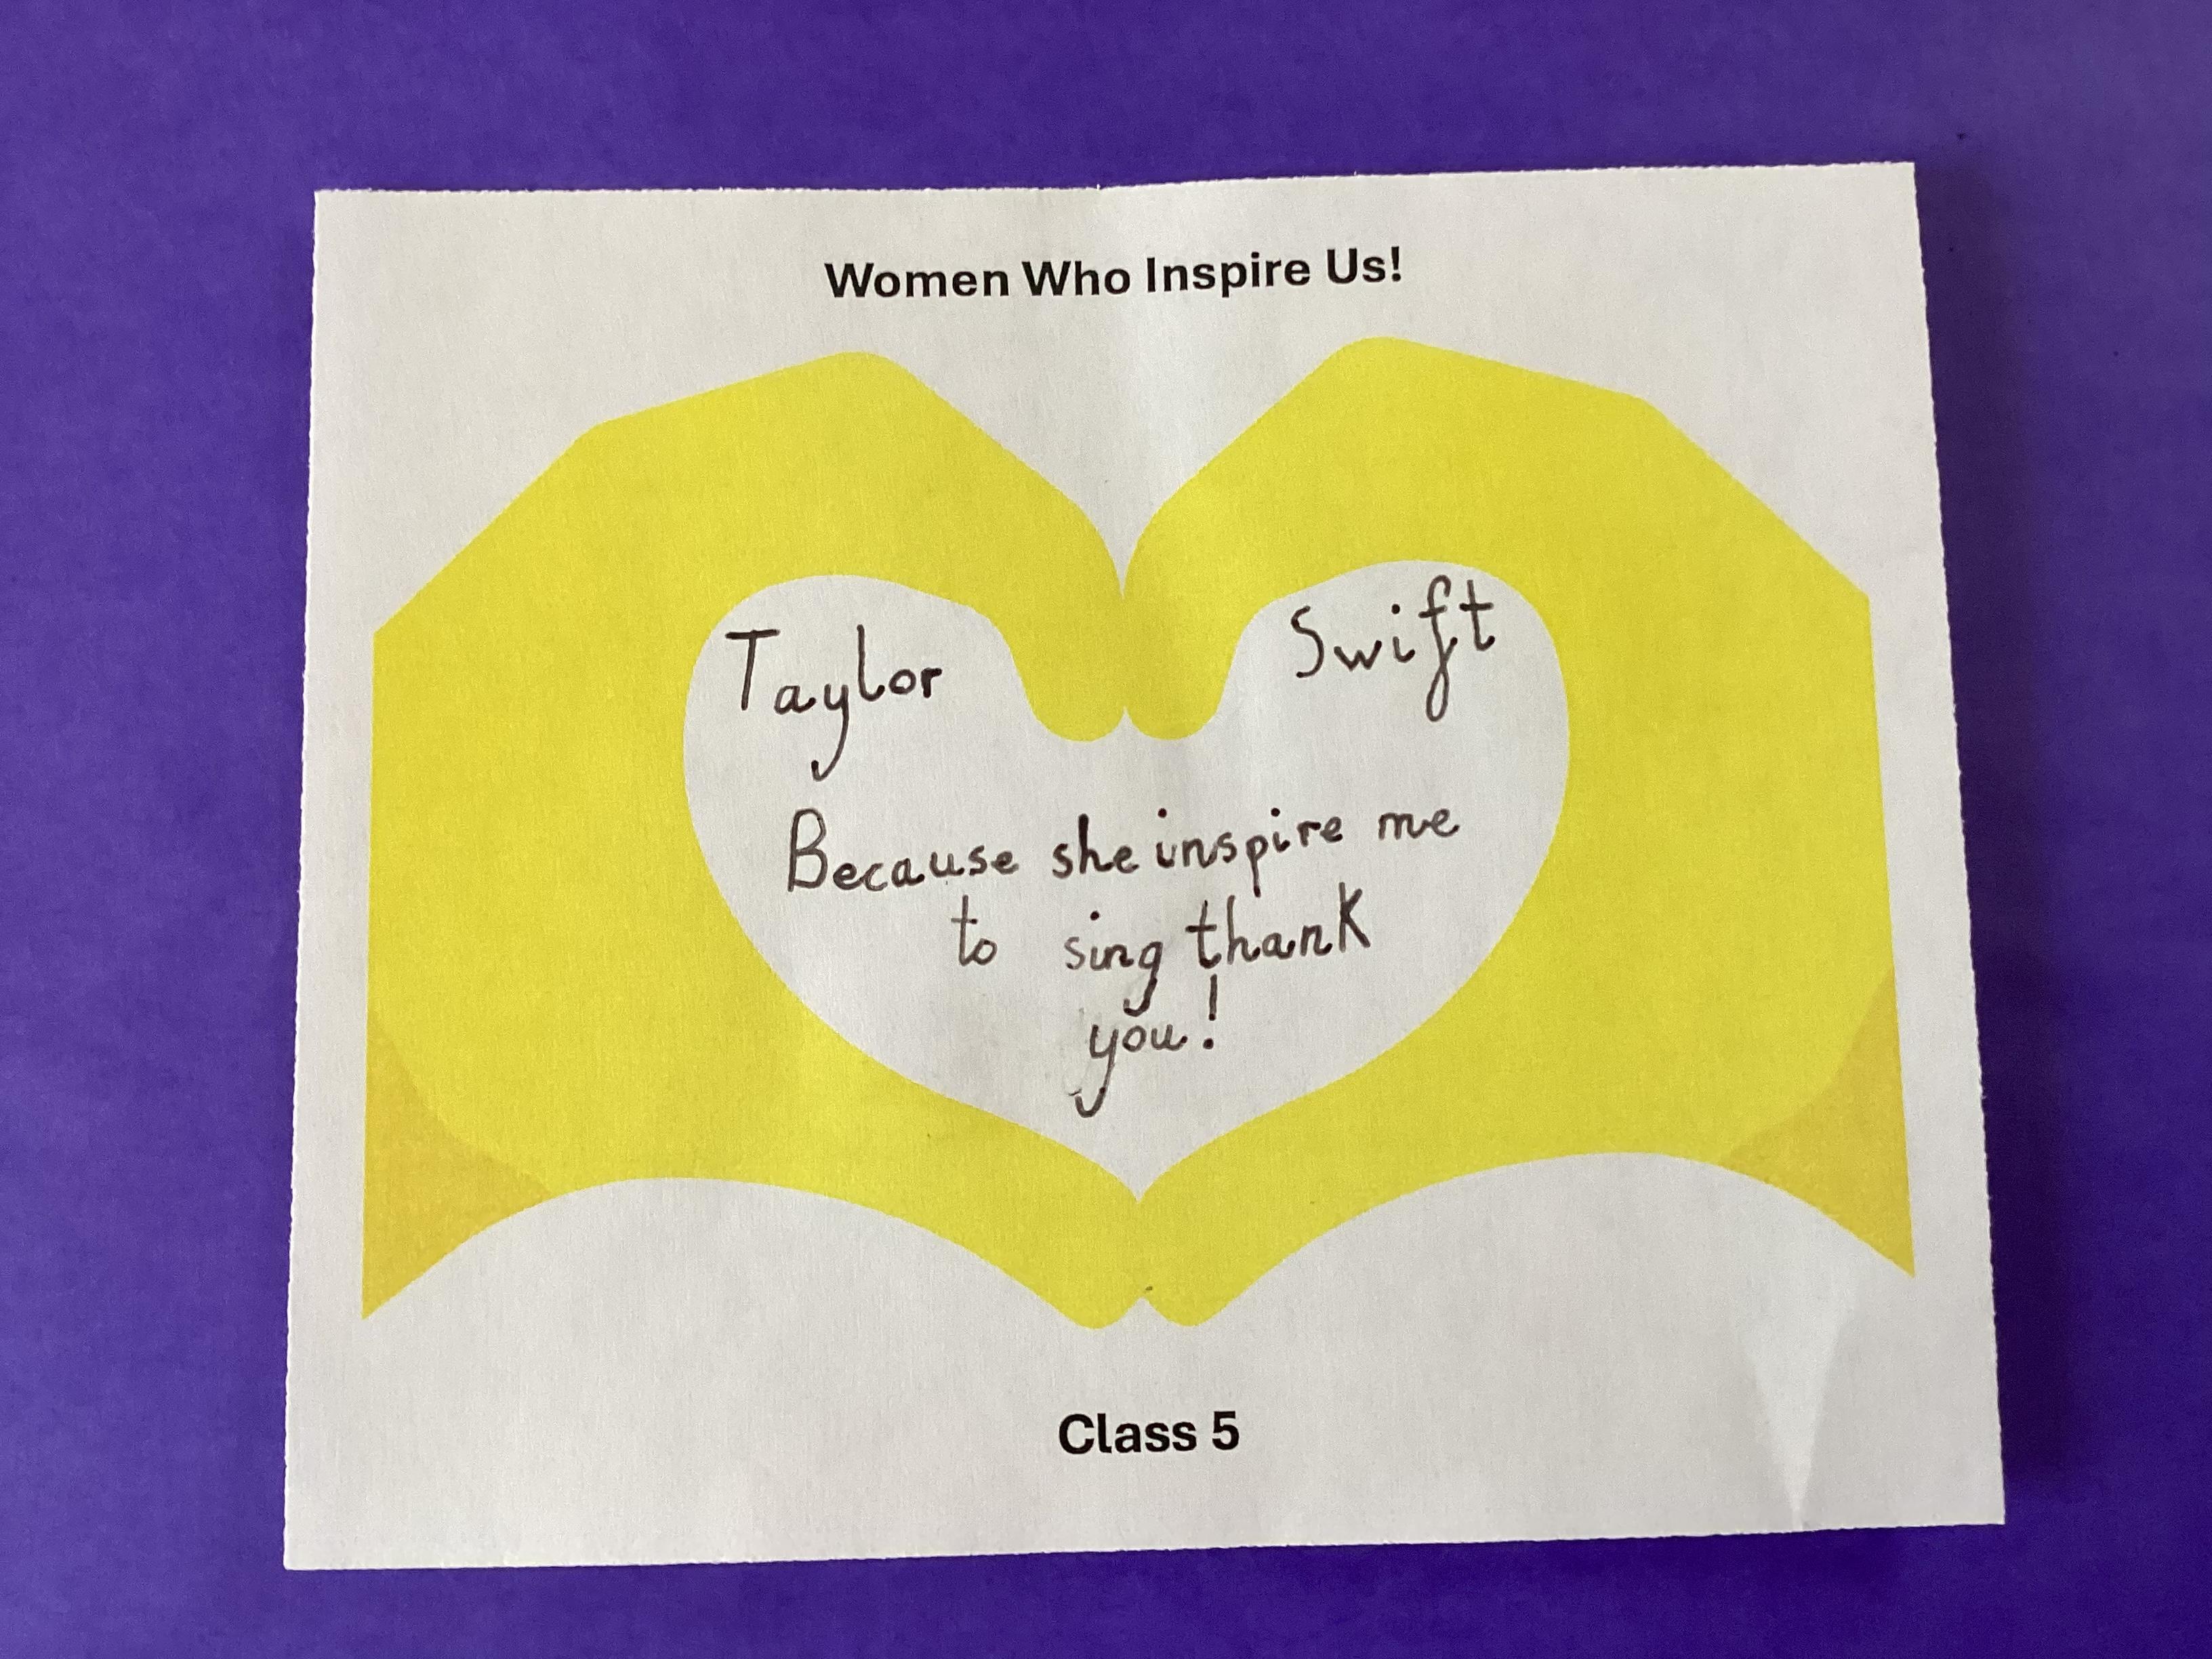 Women Who Inspire Us!
Taylor Swift
Because she inspire me
to sing thank
you!
Class 5